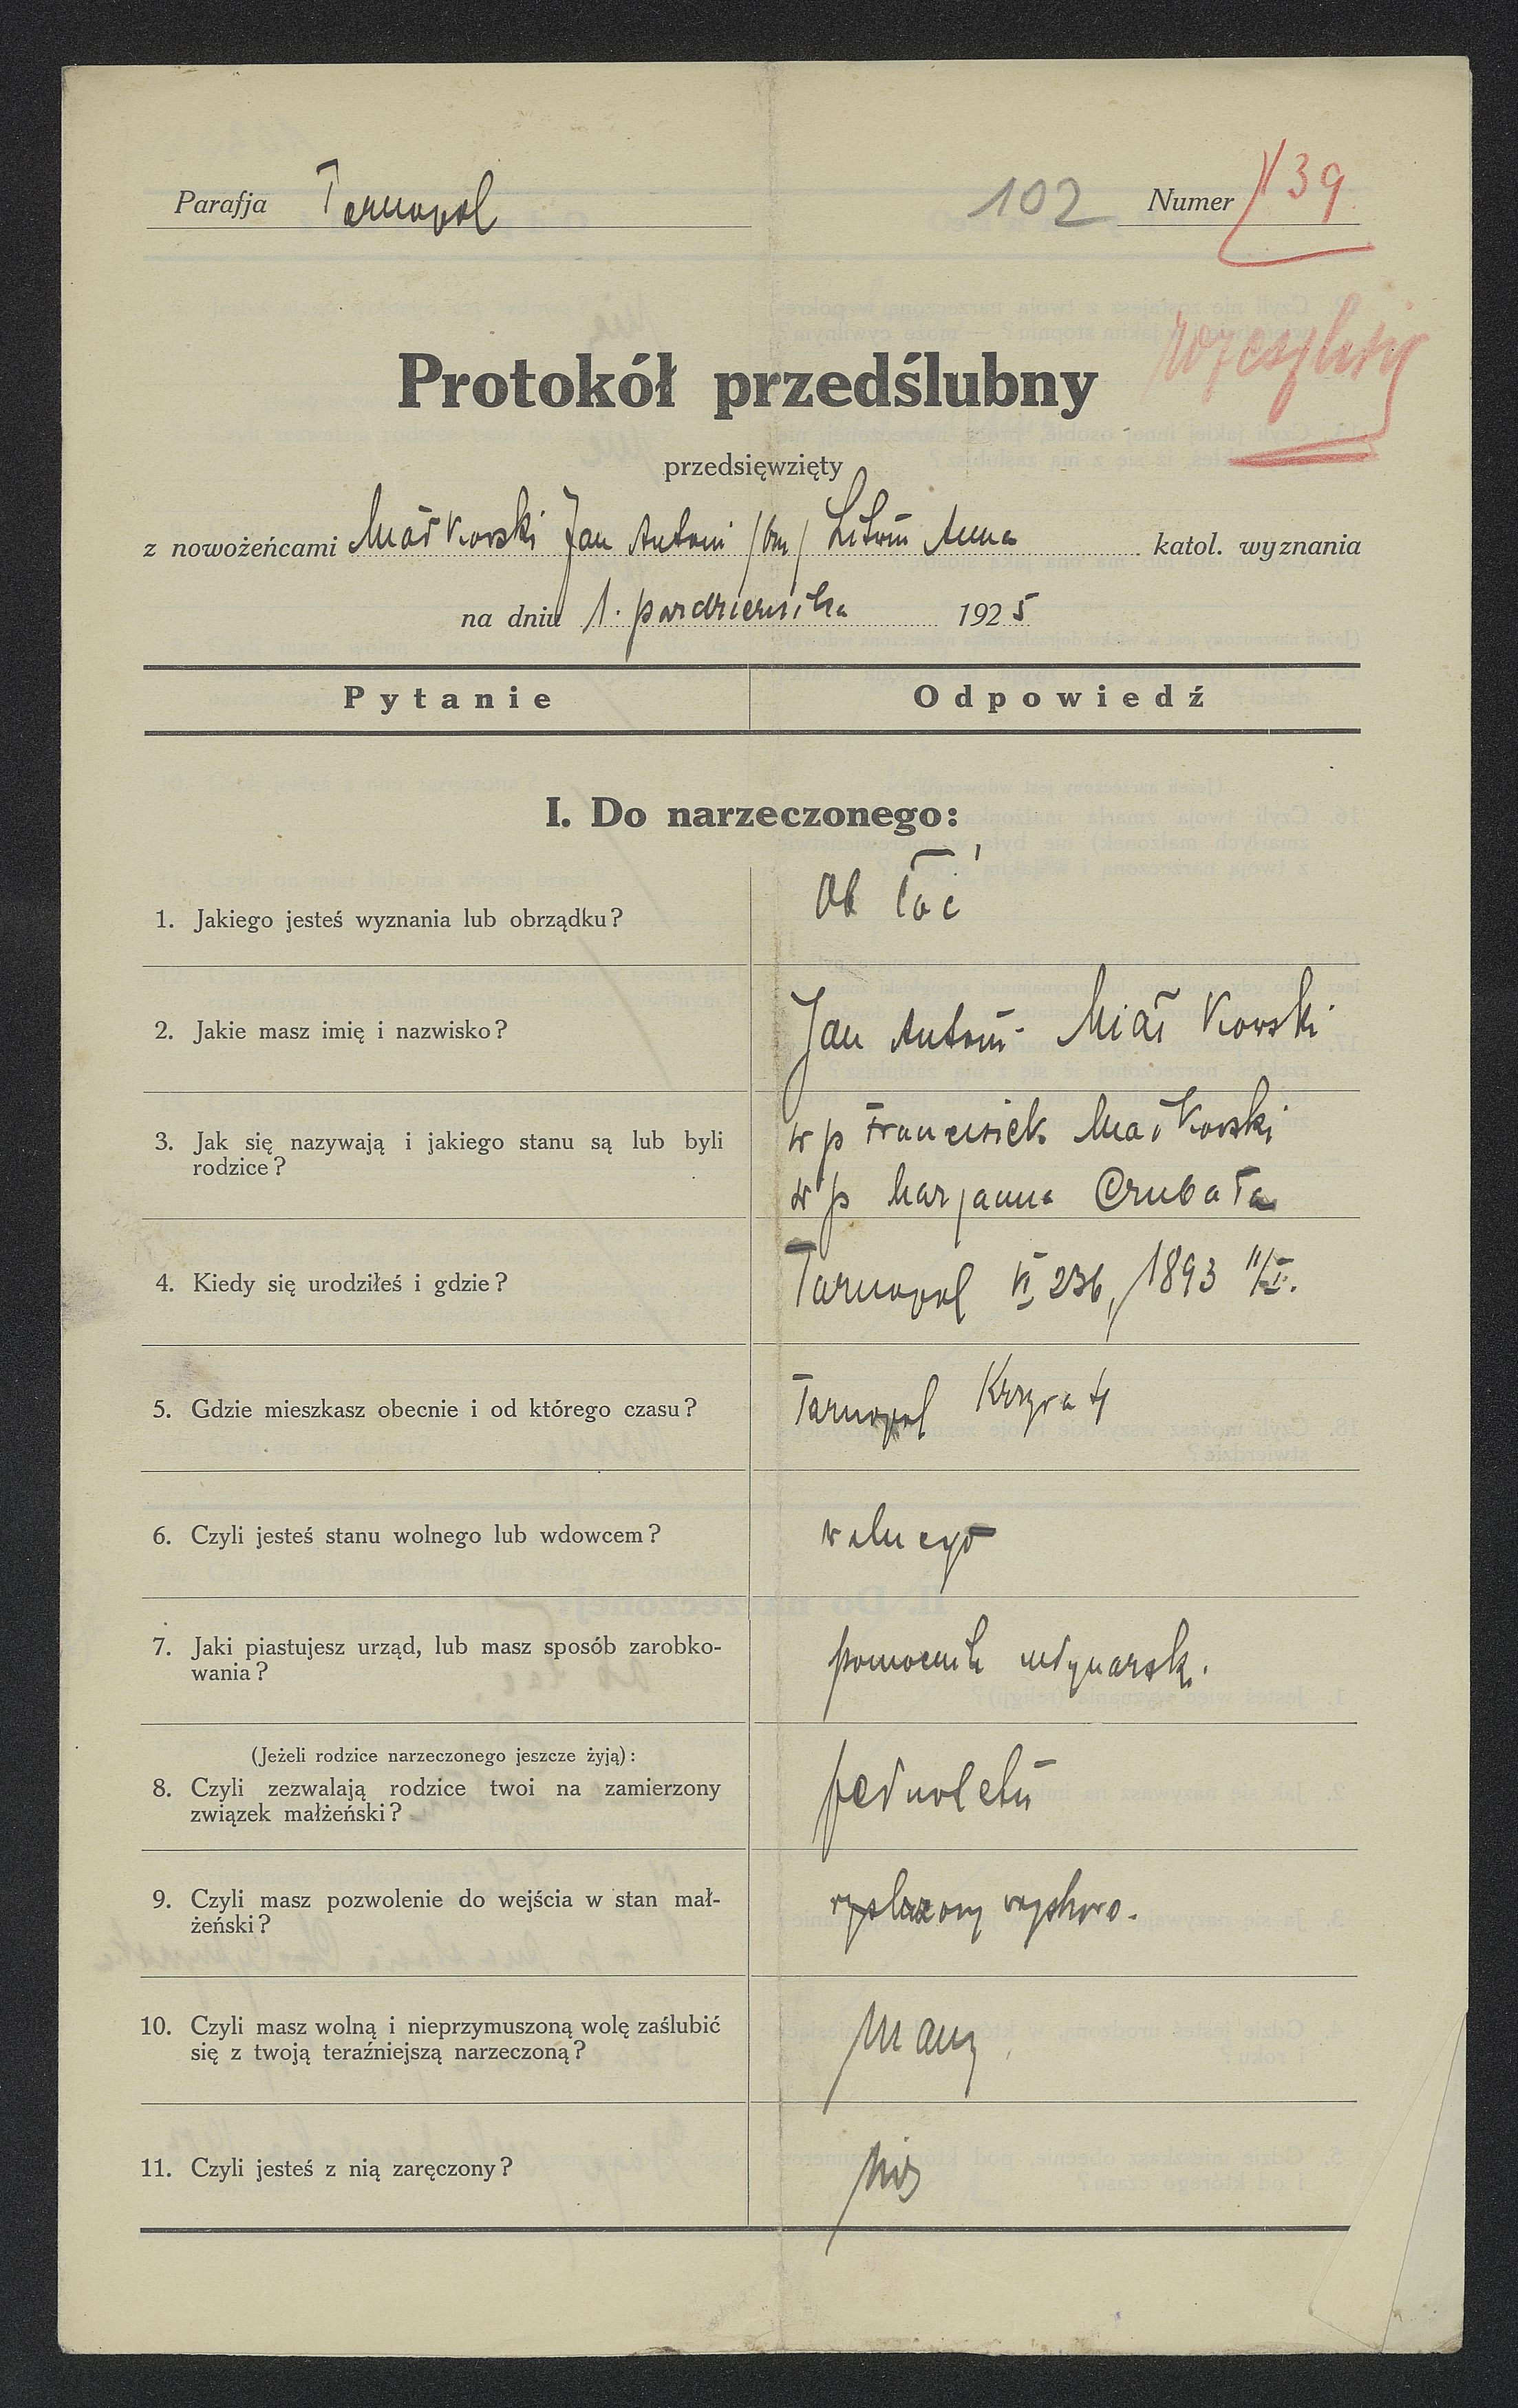 Parafja Tarnopol 102 Numer 139
Protokół przedślubny
przedsięwzięty
z nowożeńcami Miałkowski Jan Antoni Litwin Anna katol. wyznania
na dniu 1. pazdziernika 1925
Pytanie Odpowiedź
I. Do narzeczonego:
1. Jakiego jesteś wyznania lub obrządku? Ob łać
2. Jakie masz imię i nazwisko? Jan Antoni Miałkowski
3. Jak się nazywają i jakiego stanu są lub byli
rodzice?
Franciszek Miałkowski
Marjanna Czubata
4. Kiedy się urodziłeś i gdzie? Tarnopol VI, 236, 1893 11/I.
5. Gdzie mieszkasz obecnie i od którego czasu? Tarnopol Krzywa 4
6. Czyli jesteś stanu wolnego lub wdowcem? wolnego
7. Jaki piastujesz urząd, lub masz sposób zarobko-
wania?
pomocnik młynarski
(Jeżeli rodzice narzeczonego jeszcze żyją):
8. Czyli zezwalają rodzice twoi na zamierzony
związek małżeński?
pełnoletni
9. Czyli masz pozwolenie do wejścia w stan mał-
żeński?
10. Czyli masz wolną i nieprzymuszoną wolę zaślubić
się z twoją teraźniejszą narzeczoną?
Mam
11. Czyli jesteś z nią zaręczony?